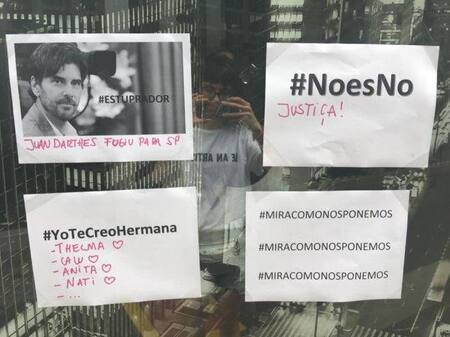 #ESTUPRADOR
JUAN DARTHES FUGIU PARA SP
#NoesNo
JUSTIÇA!
#YoTeCreoHermana
- THELMA ♡
- CALU ♡
- ANITA ♡
- NATI ♡
- ...
#MIRACOMONOSPONEMOS
#MIRACOMONOSPONEMOS
#MIRACOMONOSPONEMOS